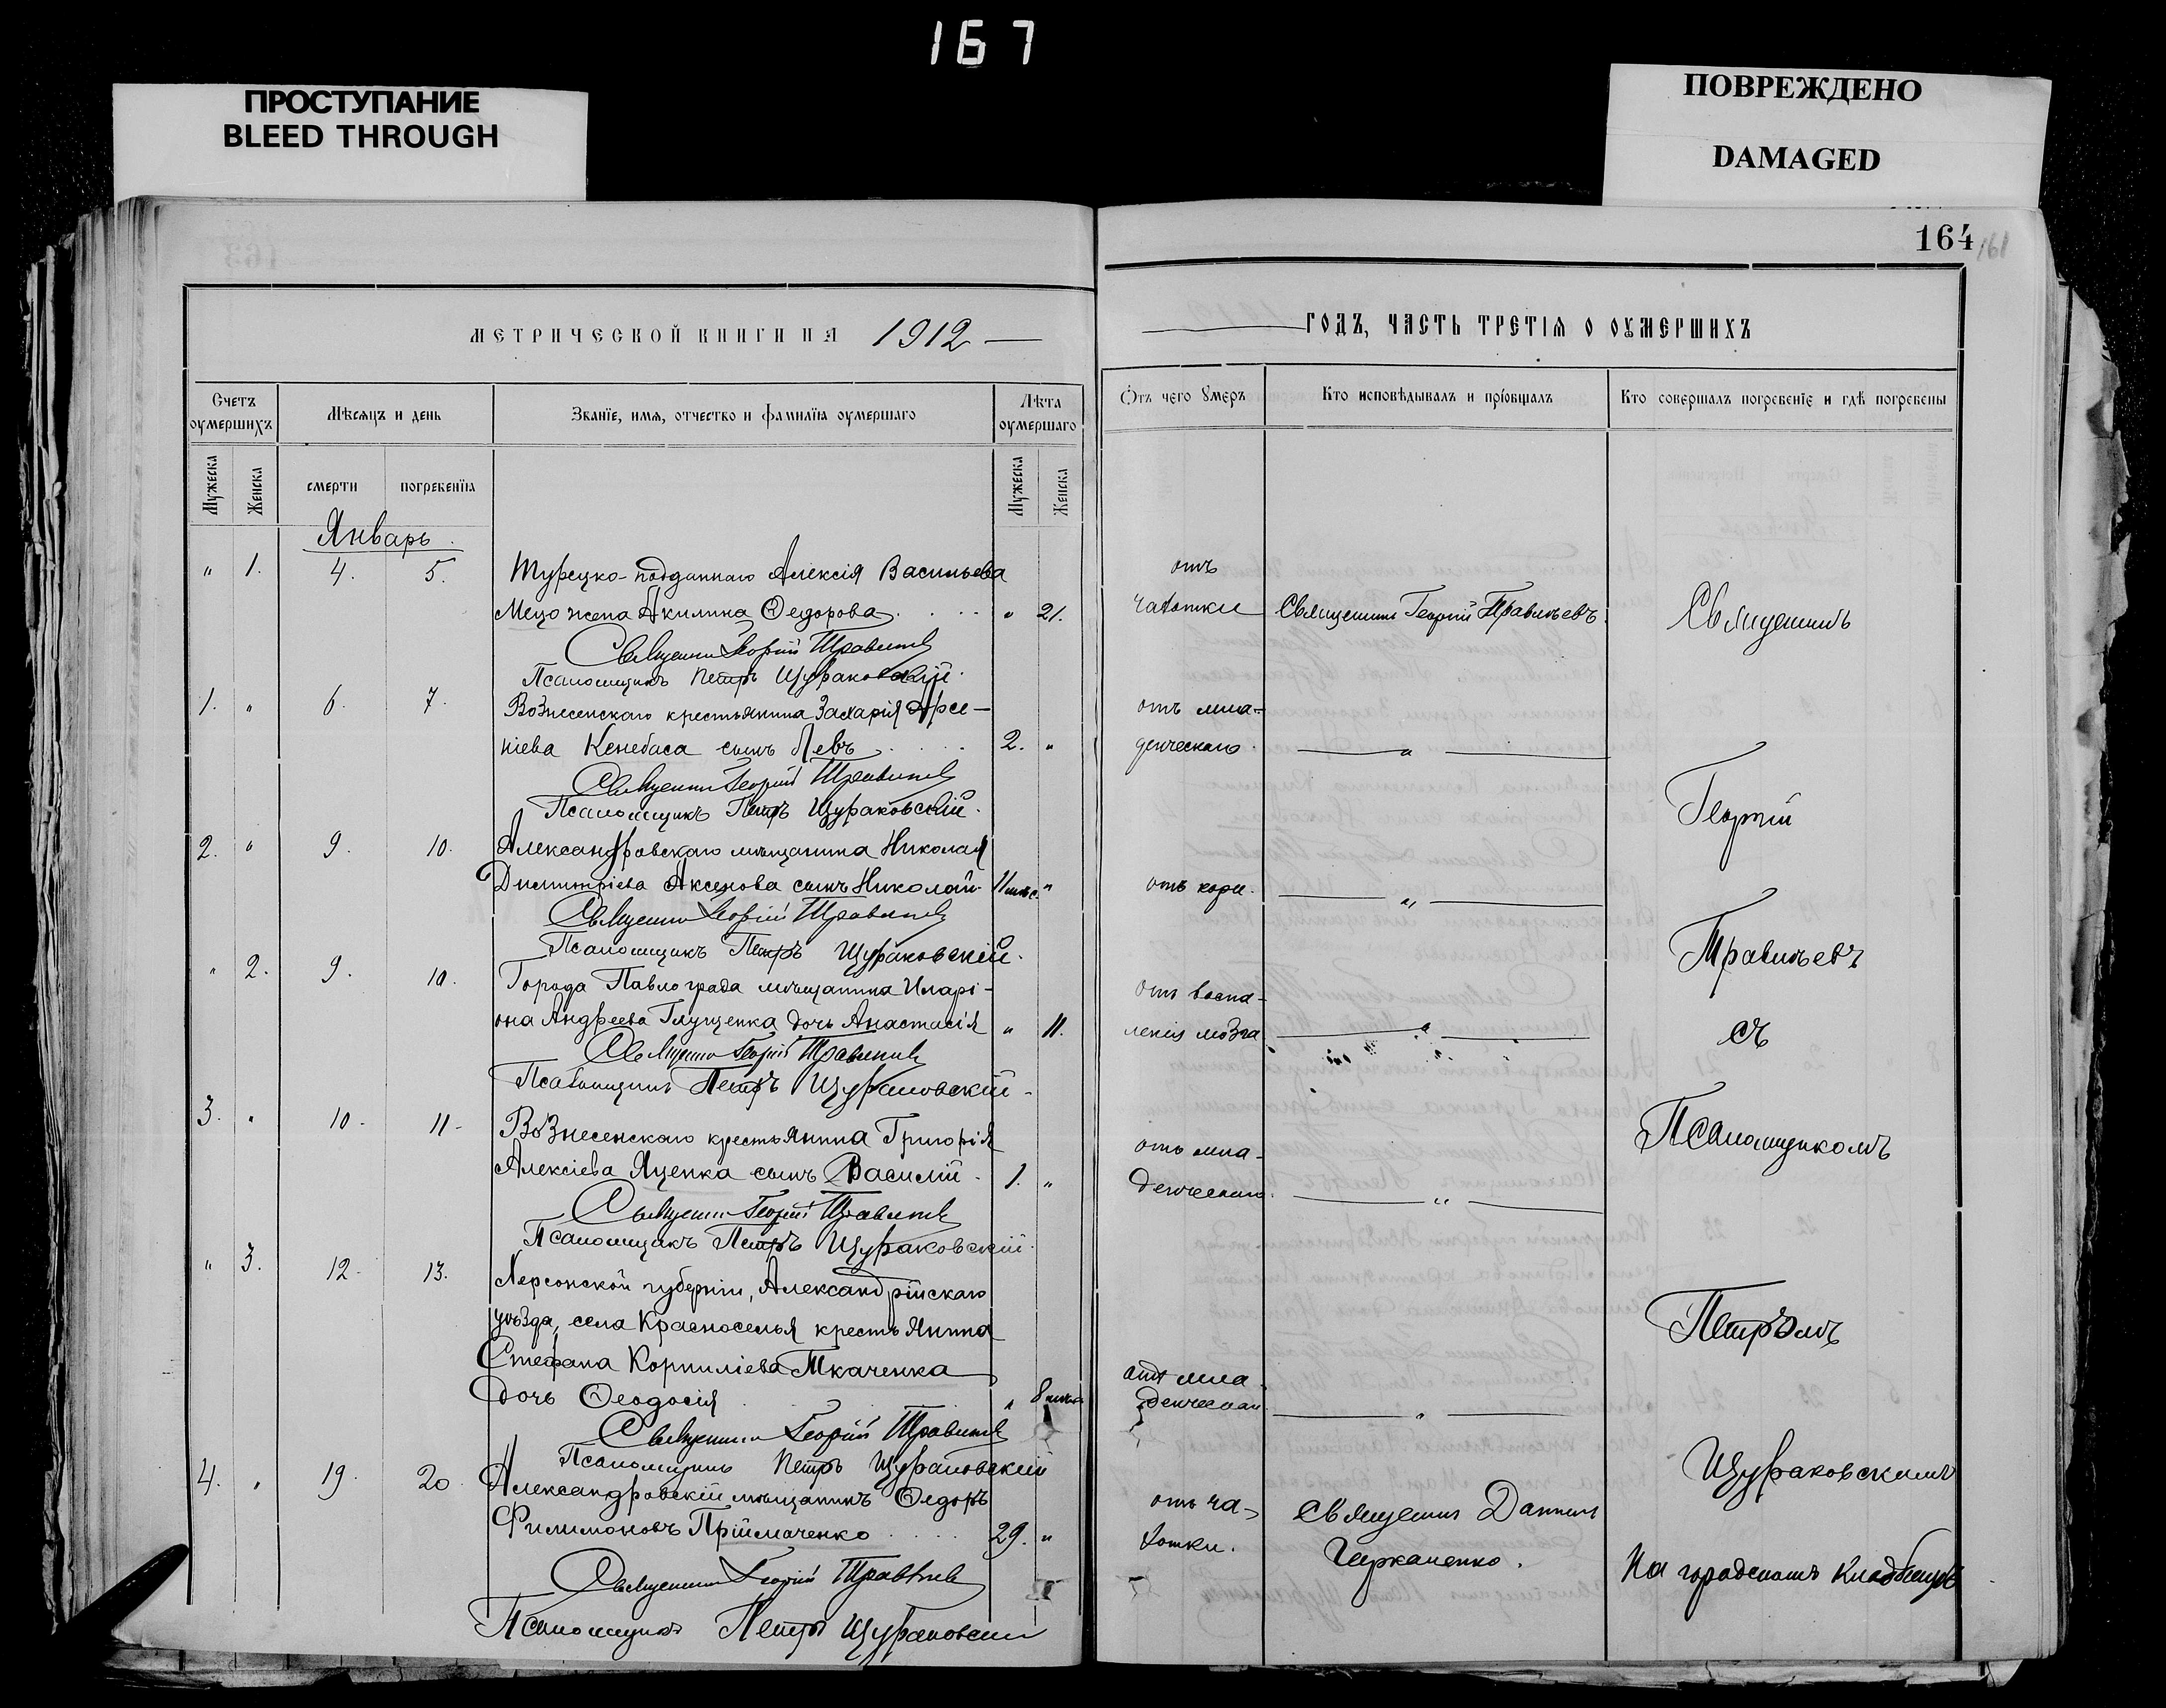 167
ПРОСТУПАНИЕ
BLEED THROUGH
ПОВРЕЖДЕНО
DAMAGED
164
161
МЕТРИЧЕСКОЙ КНИГИ НА 1912
Счетъ оумершихъ
Мѣсяцъ и день
Званїе, имя, отчество и фамилїа оумершаго
Лѣта оумершаго
Мужеска
Женска
смерти
погребенїа
Мужеска
Женска
Январь.
" 1. 4. 5. Турецко-подданнаго Алексія Васильева
Мецо жена Акилина Ѳедорова " 21.
Священникъ Георгій Травильевъ
Псаломщикъ Петръ Щураковскій.
1. " 6. 7. Вознесенскаго крестьянина Захарія Арсе-
ніева Кенебаса сынъ Левъ 2. "
Священникъ Георгій Травильевъ
Псаломщикъ Петръ Щураковскій.
2. " 9. 10. Александровскаго мѣщанина Николая
Димитріева Аксенова сынъ Николай 11 мѣс. "
Священникъ Георгій Травильевъ
Псаломщикъ Петръ Щураковскій.
" 2. 9. 10. Города Павлограда мѣщанина Иларі-
она Андреева Глущенка дочь Анастасія " 11.
Священникъ Георгій Травильевъ
Псаломщикъ Петръ Щураковскій.
3. " 10. 11. Вознесенскаго крестьянина Григорія
Алексіева Яценка сынъ Василій 1. "
Священникъ Георгій Травильевъ
Псаломщикъ Петръ Щураковскій.
" 3. 12. 13. Херсонской губерніи, Александрійскаго
уѣзда, села Красноселья крестьянина
Стефана Корниліева Ткаченка
дочь Ѳеодосія " 8
Священникъ Георгій Травильевъ
Псаломщикъ Петръ Щураковскій
4. " 19. 20. Александровскій мѣщанинъ Ѳедоръ
Филимоновъ Пріймаченко 29. "
Священникъ Георгій Травильевъ
Псаломщикъ Петръ Щураковскій
ГОДЪ, ЧАСТЬ ТРЕТІЯ О ОУМЕРШИХЪ
Отъ чего умеръ
Кто исповѣдывалъ и прїобщалъ
Кто совершалъ погребенїе и гдѣ погребены
отъ
чахотки Священникъ Георгій Травильевъ.
отъ мла-
денческаго. "
отъ кори. "
отъ воспа-
ленія мозга "
отъ мла-
денческаго. "
отъ мла-
денческаго "
отъ ча-
хотки.
Священникъ Даніилъ
Священникъ
Георгій
Травильевъ
съ
Псаломщикомъ
Петромъ
Щураковскимъ
На городскомъ кладбищѣ